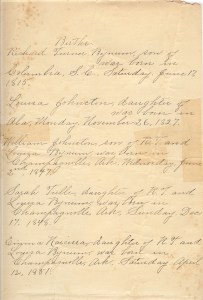 Births
Richard Turner Wynum, son of
was born in
Columbia, S.C. Saturday, June 17
1815.
Louisa Johnston daughter of
was born in
Ala, Monday, November 26, 1827.
William Johnston, son of R.T. and
Wynum, was born in
Champagnolle, Ark. Wednesday June
2nd 1847.
Sarah daughter of R.T. and
Wynum, was born in
Champagnolle, Ark. Sunday Dec
17, 1848
Emma daughter of R.T. and
Wynum was born in
Champagnolle Ark. Saturday April
12, 1851.